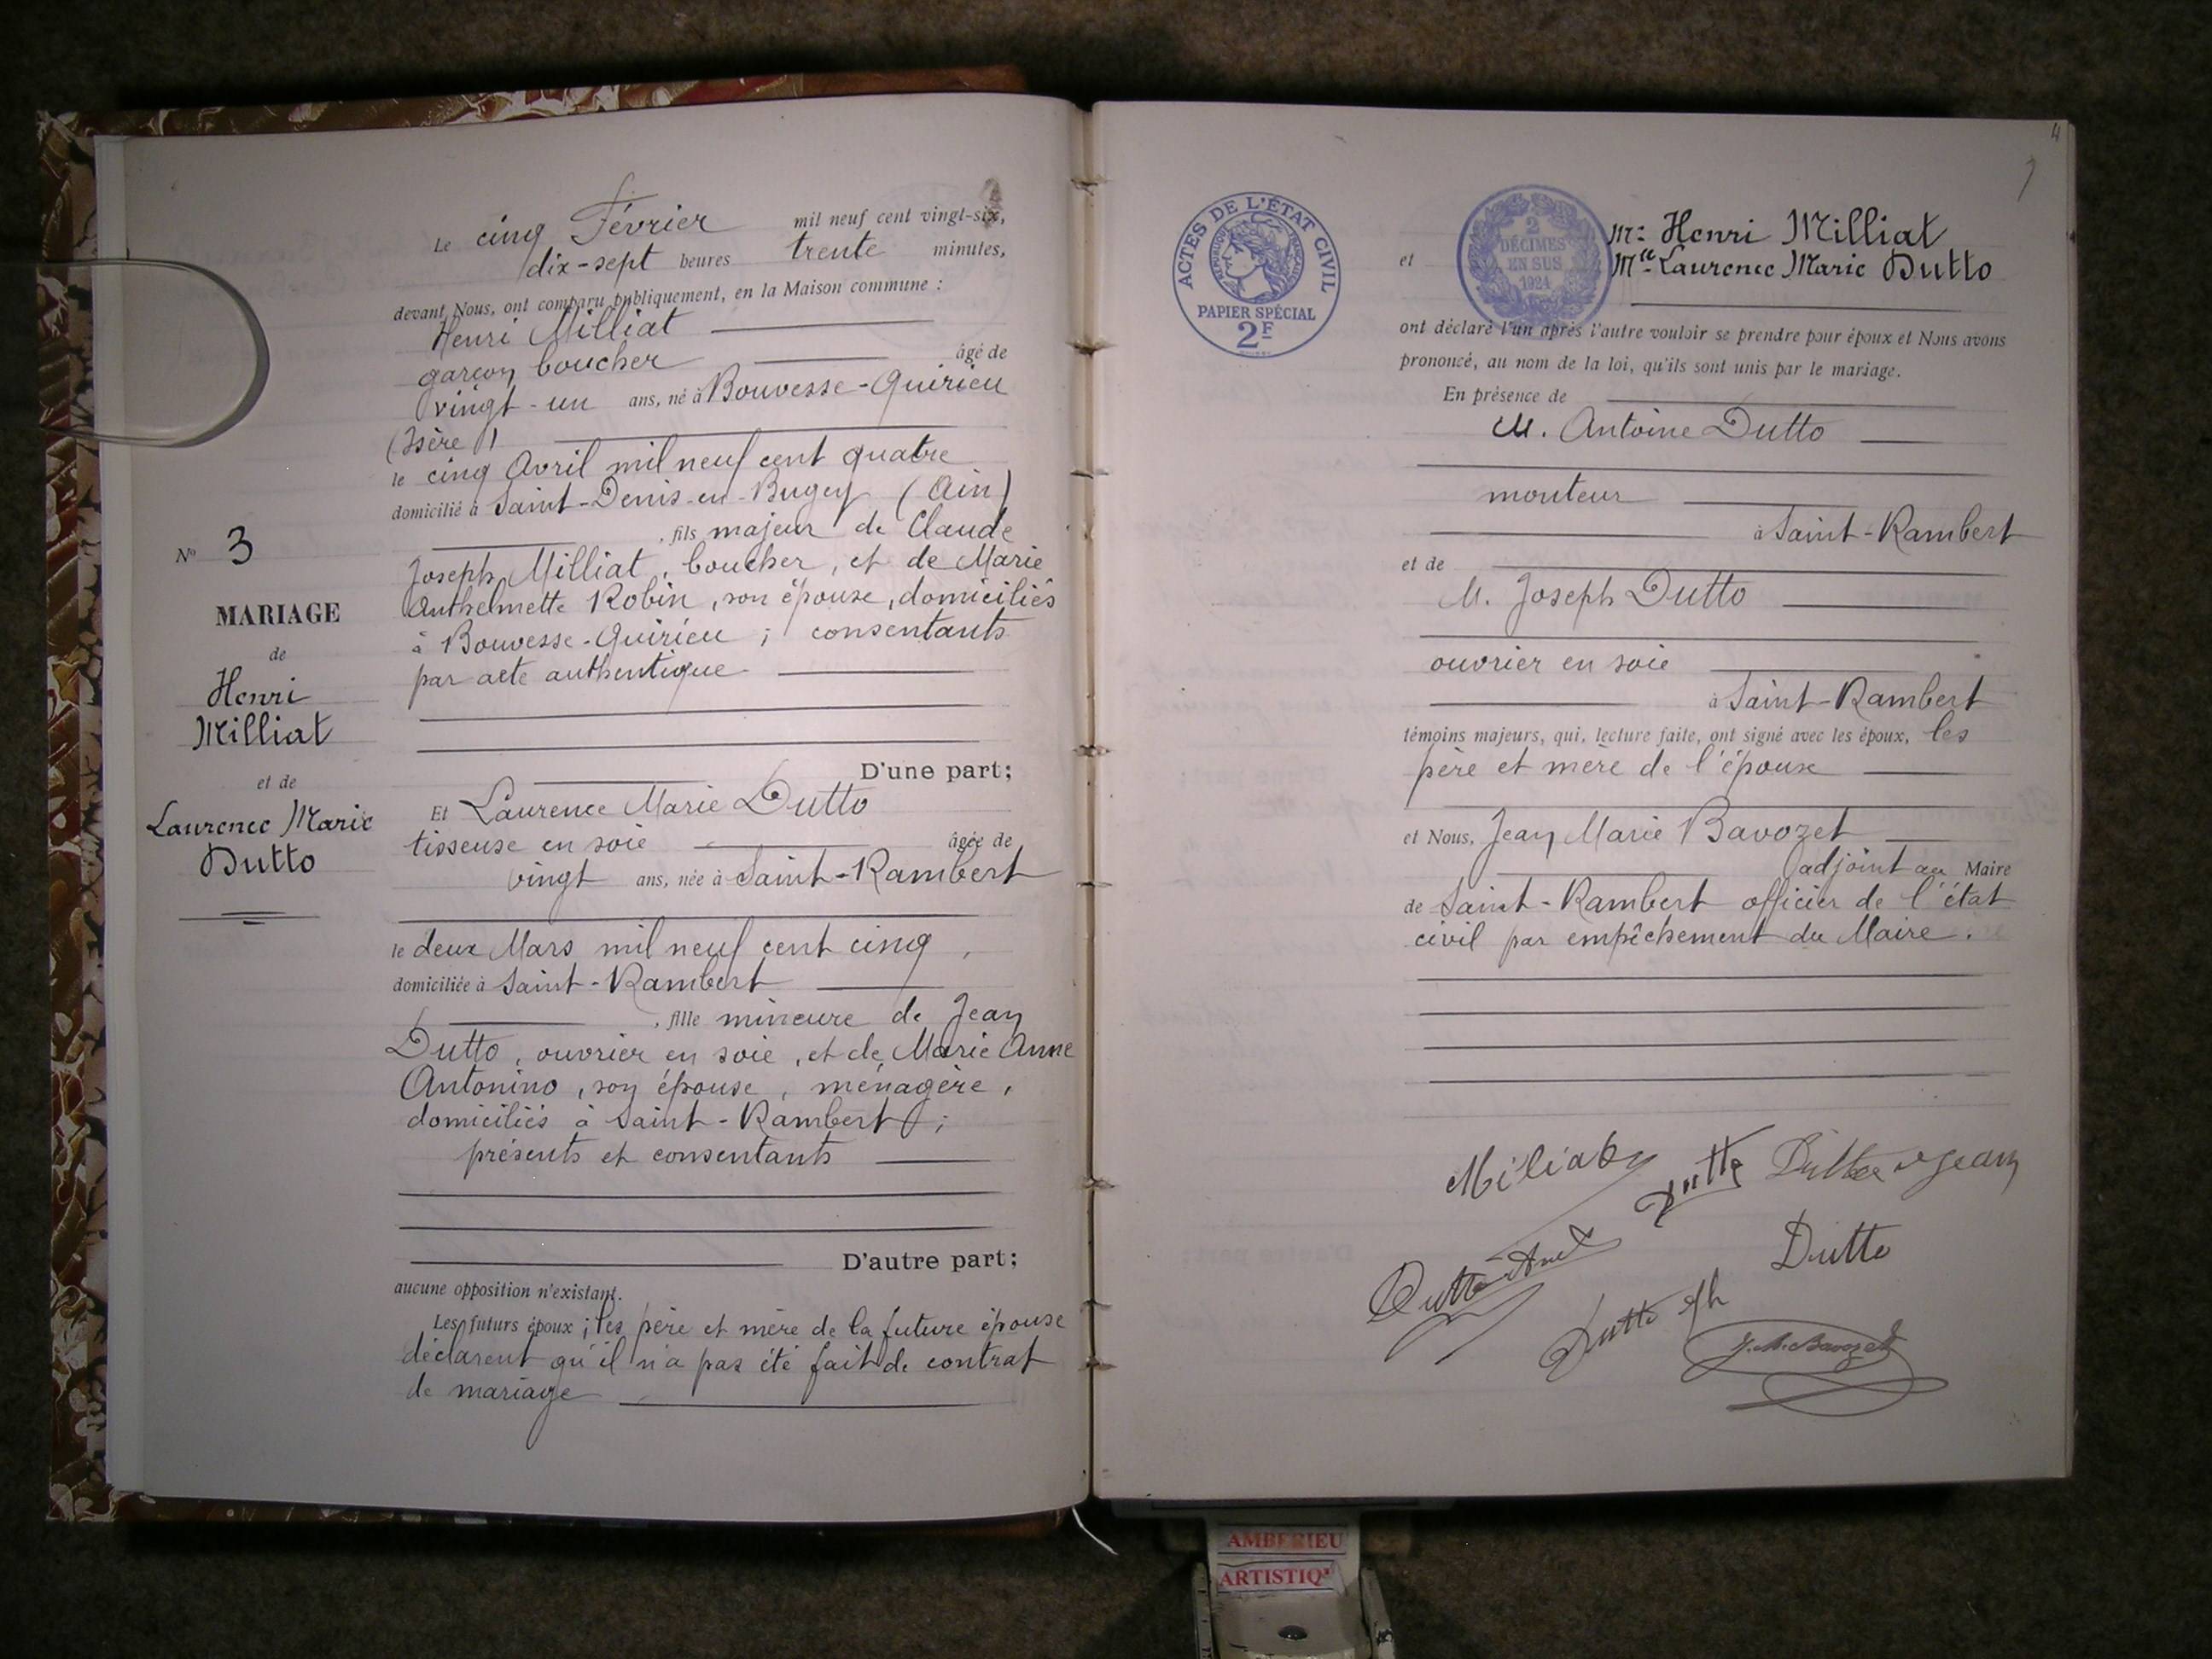 Le cinq Février mil neuf cent vingt-six,
dix-sept heures trente minutes,
devant Nous, ont comparu publiquement, en la Maison commune :
Henri Milliat
garçon boucher âgé de
vingt-un ans, né à Bouvesse-Quirieu
(Isère)
le cinq Avril mil neuf cent quatre
domicilié à Saint-Denis-en-Bugey (Ain)
, fils majeur de Claude
Joseph Milliat, boucher, et de Marie
Anthelmette Robin, son épouse, domiciliés
à Bouvesse-Quirieu ; consentants
par acte authentique
D'une part;
Et Laurence Marie Dutto
tisseuse en soie âgée de
vingt ans, née à Saint-Rambert
le deux Mars mil neuf cent cinq,
domiciliée à Saint-Rambert
, fille mineure de Jean
Dutto, ouvrier en soie, et de Marie Anne
Antonino, son épouse, ménagère,
domiciliés à Saint-Rambert ;
présents et consentants
D'autre part;
aucune opposition n'existant.
Les futurs époux ; les père et mère de la future épouse
déclarent qu'il n'a pas été fait de contrat
de mariage
N° 3
MARIAGE
de
Henri
Milliat
et de
Laurence Marie
Dutto
4
ACTES DE L'ÉTAT CIVIL
RÉPUBLIQUE FRANÇAISE
PAPIER SPÉCIAL
2F
2
DÉCIMES
EN SUS
1924
Mr Henri Milliat
et Mlle Laurence Marie Dutto
ont déclaré l'un après l'autre vouloir se prendre pour époux et Nous avons
prononcé, au nom de la loi, qu'ils sont unis par le mariage.
En présence de
M. Antoine Dutto
monteur
à Saint-Rambert
et de
M. Joseph Dutto
ouvrier en soie
à Saint-Rambert
témoins majeurs, qui, lecture faite, ont signé avec les époux, les
père et mère de l'épouse
et Nous, Jean Marie Bavozet
adjoint au Maire
de Saint-Rambert officier de l'état
civil par empêchement du Maire.
Dutto Jean
Dutto
Dutto
Dutto
J. M. Bavozet
AMBERIEU
ARTISTIQ